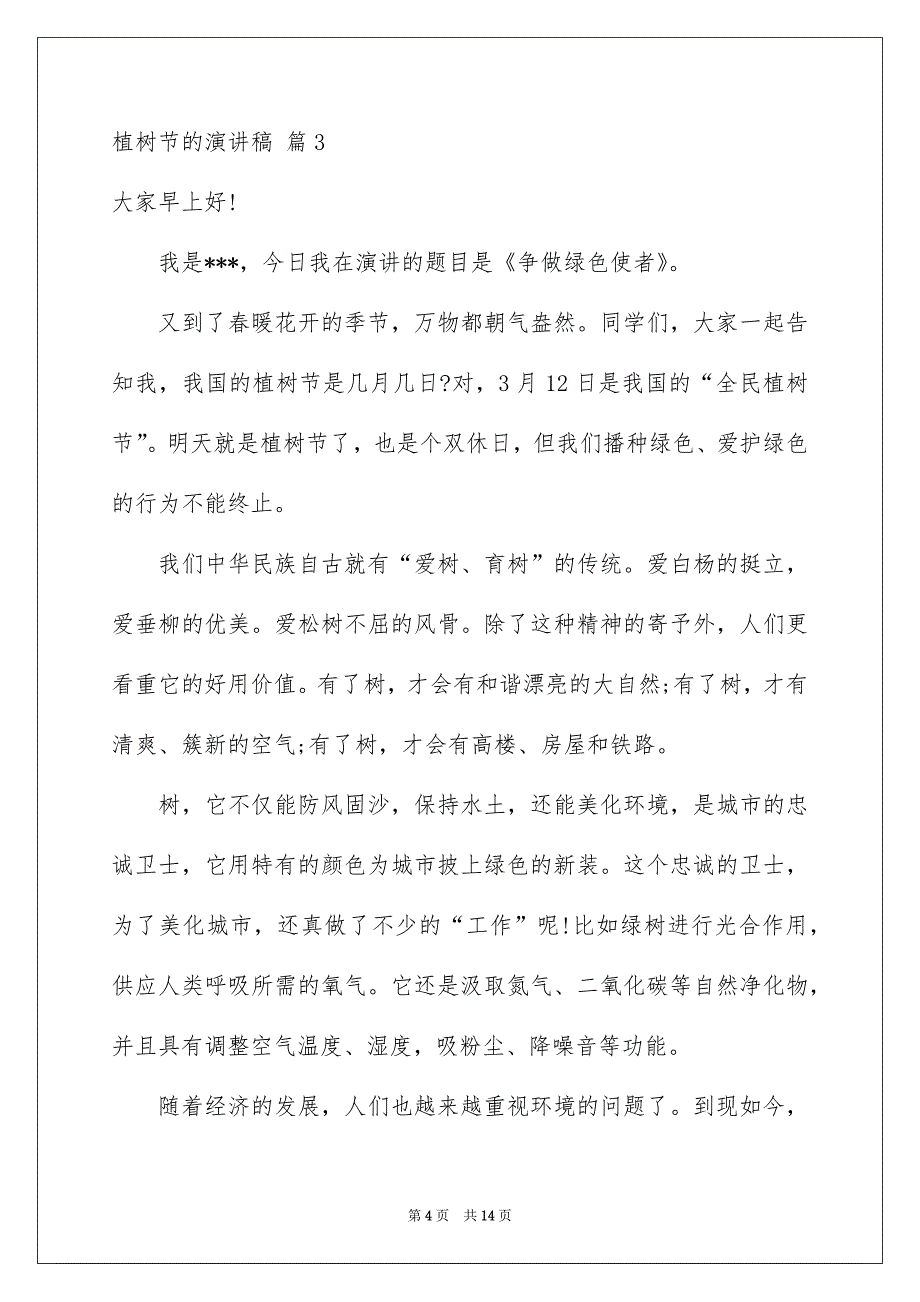 植树节的演讲稿 篇3
大家早上好!
我是***，今日我在演讲的题目是《争做绿色使者》。
又到了春暖花开的季节，万物都朝气盎然。同学们，大家一起告
知我，我国的植树节是几月几日?对，3月12日是我国的“全民植树
节”。明天就是植树节了，也是个双休日，但我们播种绿色、爱护绿色
的行为不能终止。
我们中华民族自古就有“爱树、育树”的传统。爱白杨的挺立，
爱垂柳的优美。爱松树不屈的风骨。除了这种精神的寄予外，人们更
看重它的好用价值。有了树，才会有和谐漂亮的大自然;有了树，才有
清爽、簇新的空气;有了树，才会有高楼、房屋和铁路。
树，它不仅能防风固沙，保持水土，还能美化环境，是城市的忠
诚卫士，它用特有的颜色为城市披上绿色的新装。这个忠诚的卫士，
为了美化城市，还真做了不少的“工作”呢!比如绿树进行光合作用，
供应人类呼吸所需的氧气。它还是汲取氮气、二氧化碳等自然净化物，
并且具有调整空气温度、湿度，吸粉尘、降噪音等功能。
随着经济的发展，人们也越来越重视环境的问题了。到现如今，
第4页 共14页